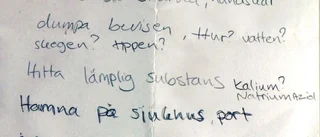 dumpa bevisen, Hur? vatten?
skogen? tippen?
Hitta lämplig substans Kalium?
Natriumazid
Hamna på sjukhus, port